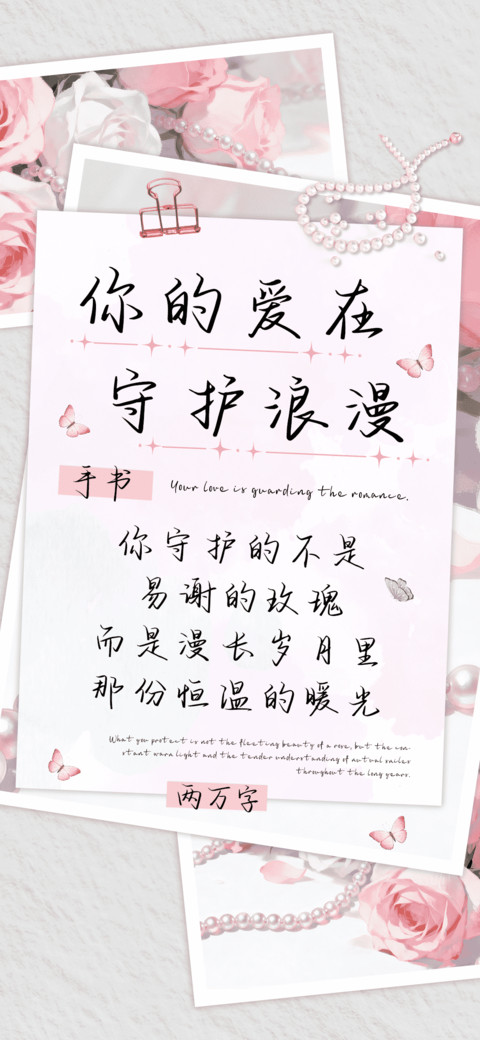 你的爱在
守护浪漫
手书
Your love is guarding the romance.
你守护的不是
易谢的玫瑰
而是漫长岁月里
那份恒温的暖光
What you protect is not the fleeting beauty of a rose, but the con-
stant warm light and the tender understanding of mutual smiles
throughout the long years.
两万字